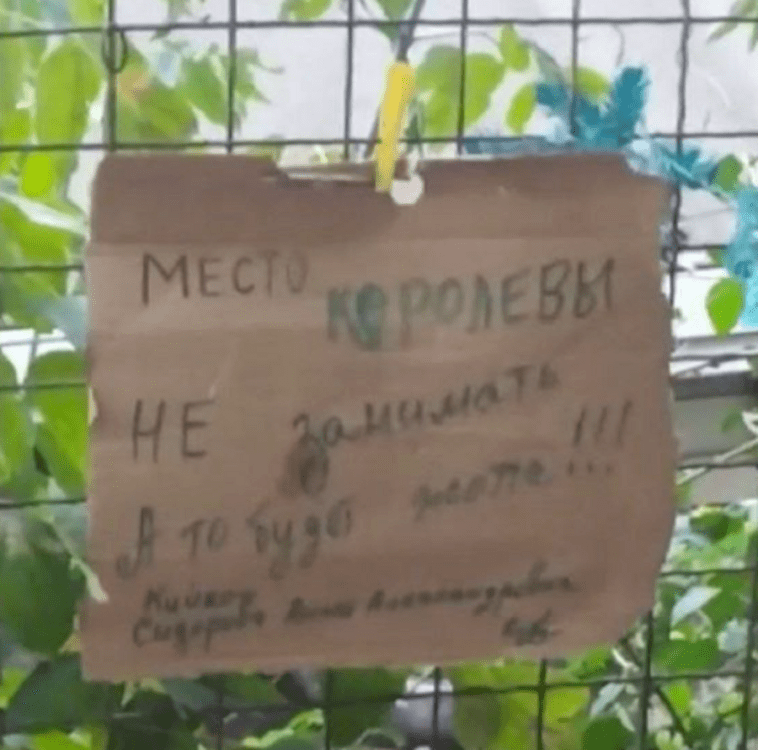 МЕСТО КОРОЛЕВЫ
НЕ занимать !!!
А то будет жопа...
Сидорова Александрович